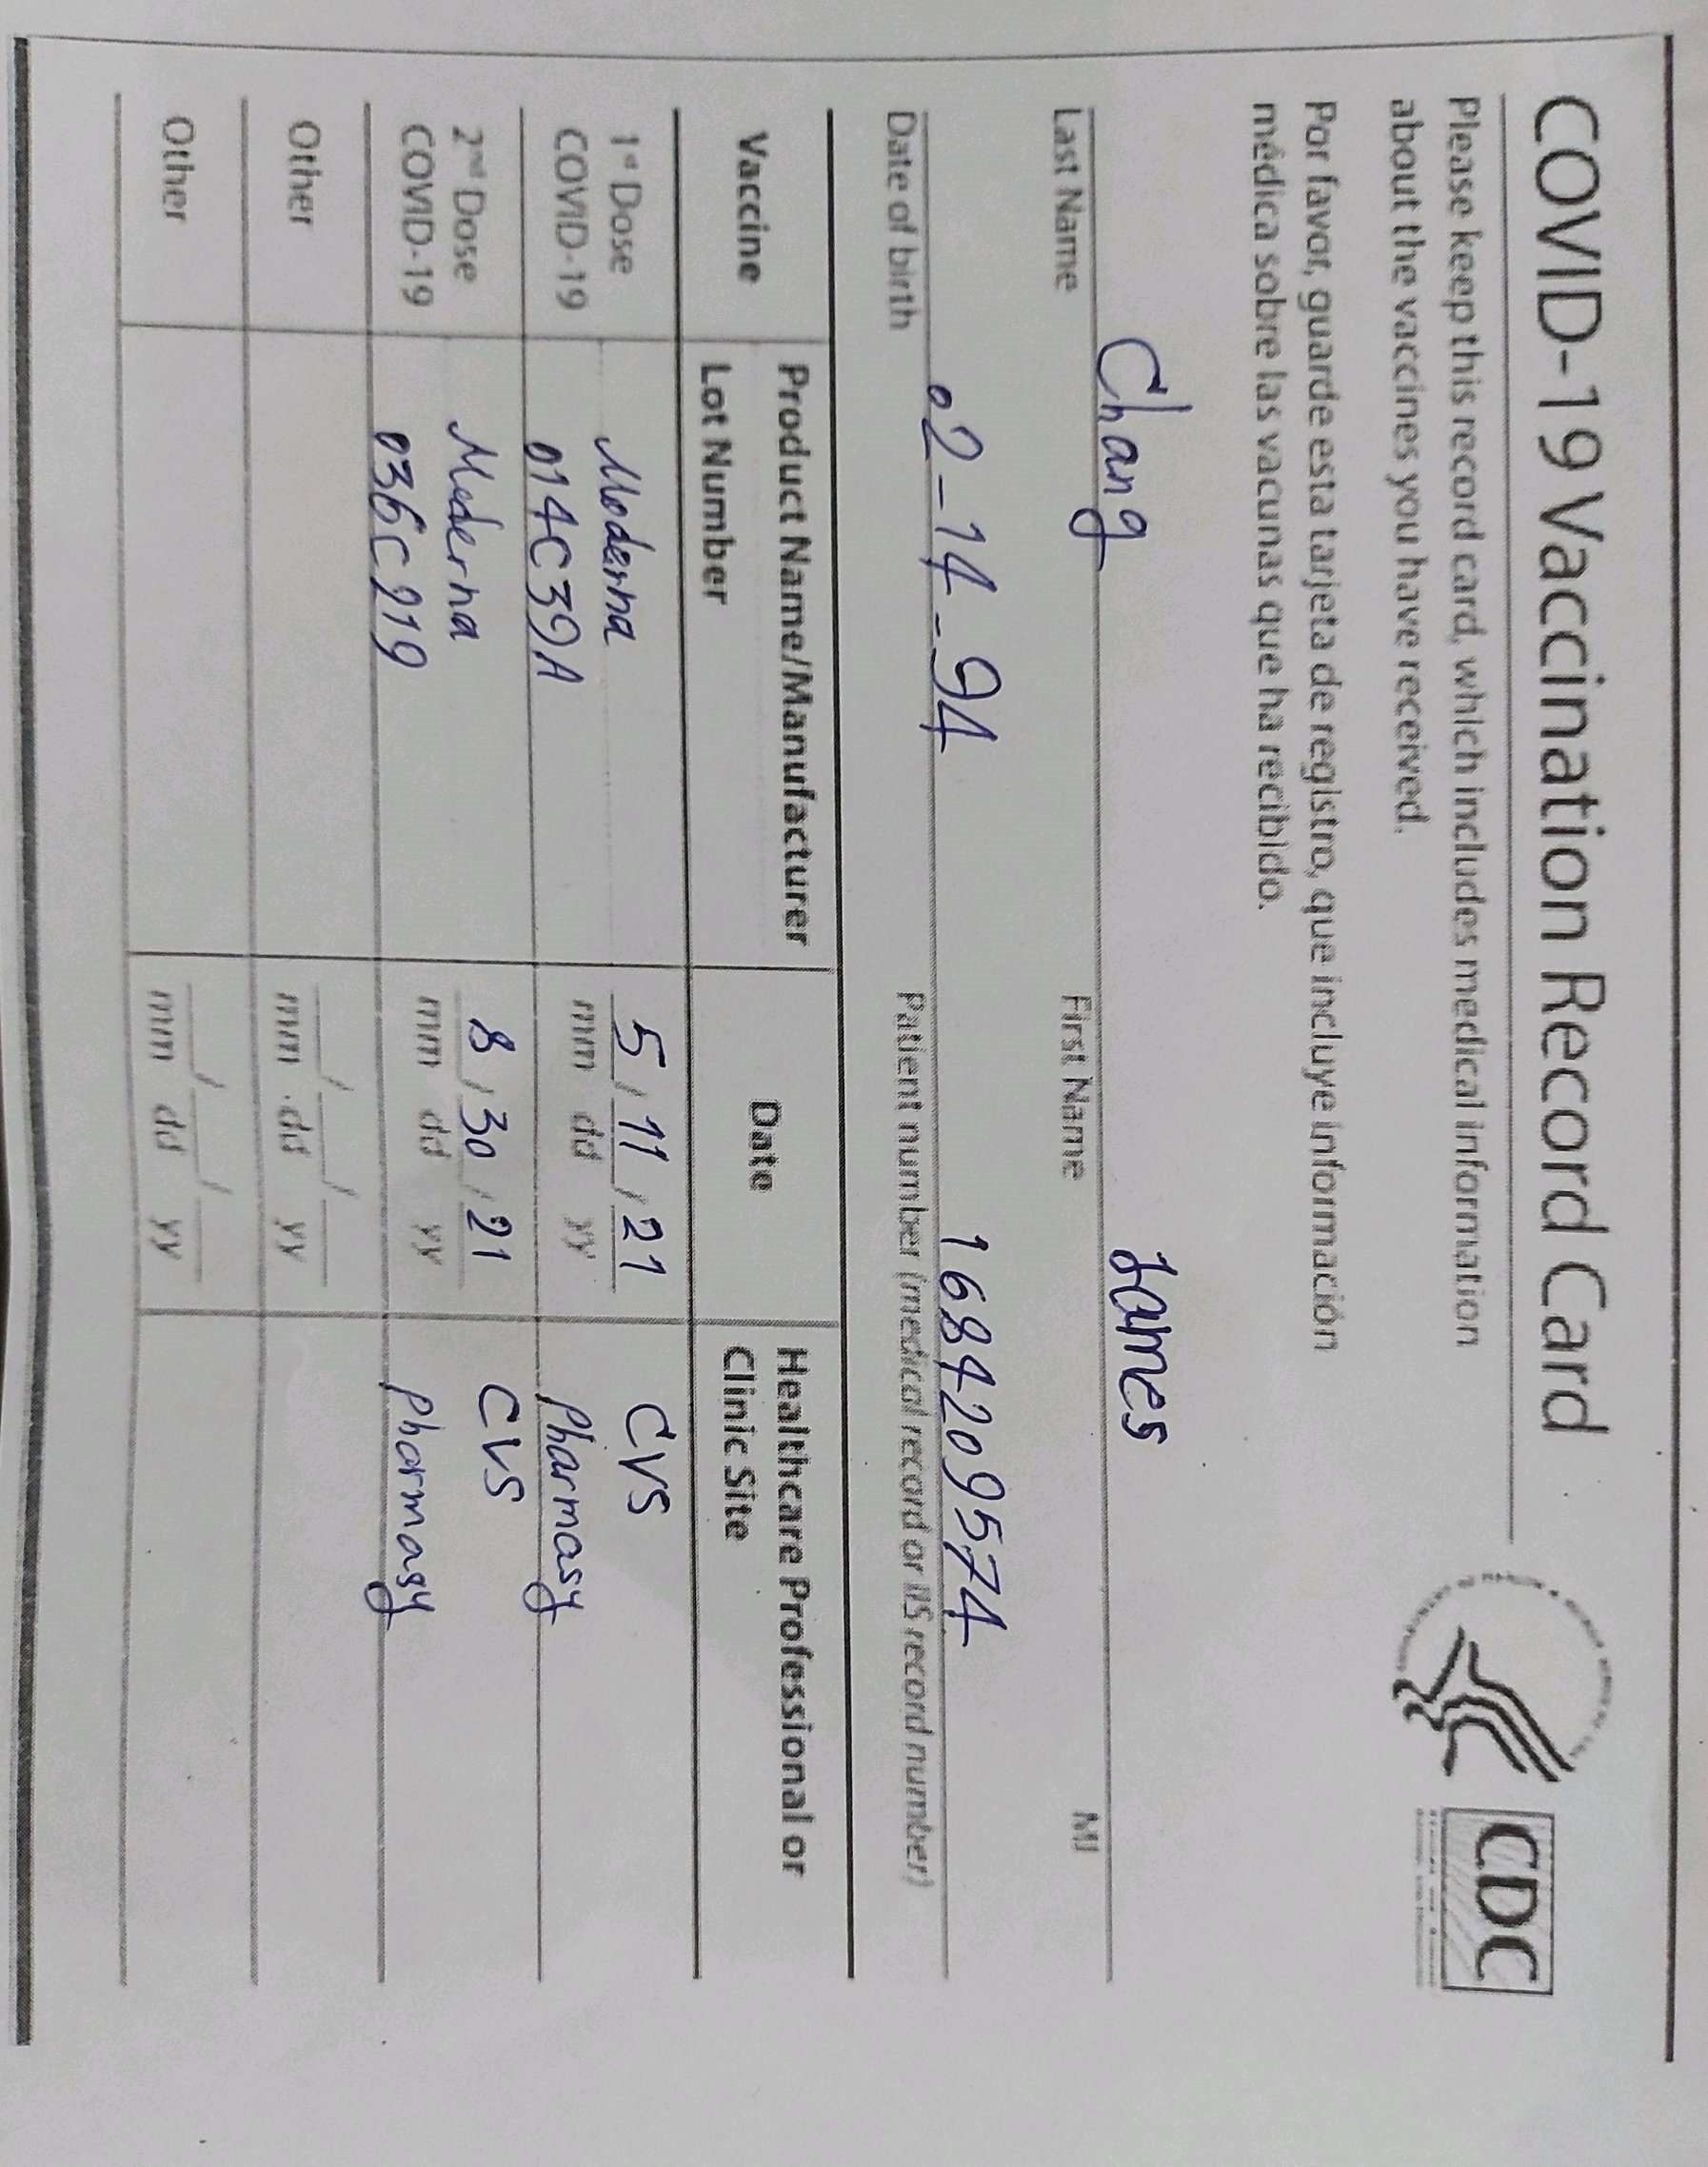 COVID-19 Vaccination Record Card
CDC
Please keep this record card, which includes medical information
about the vaccines you have received.
Por favor, guarde esta tarjeta de registro, que incluye información
médica sobre las vacunas que ha recibido.
Chang James
Last Name First Name MI
02-14-94 1684209574
Date of birth Patient number (medical record or IIS record number)
Vaccine Product Name/Manufacturer Lot Number Date Healthcare Professional or Clinic Site
1st Dose COVID-19
Moderna
014C39A
5/11/21
mm dd yy
CVS
Pharmasy
2nd Dose COVID-19
Moderna
036C219
8/30/21
mm dd yy
CVS
Pharmasy
Other
__/__/__
mm dd yy
Other
__/__/__
mm dd yy